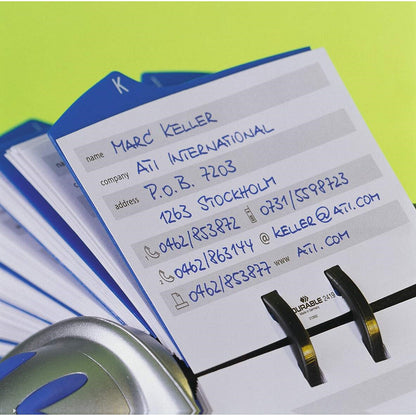 K
name MARC KELLER
company ATI INTERNATIONAL
address P.O.B. 7203
1263 STOCKHOLM
0462/853872 0731/5598723
0462/863144 @ KELLER@ATI.COM
0462/853877 www ATI.COM
DURABLE 2419